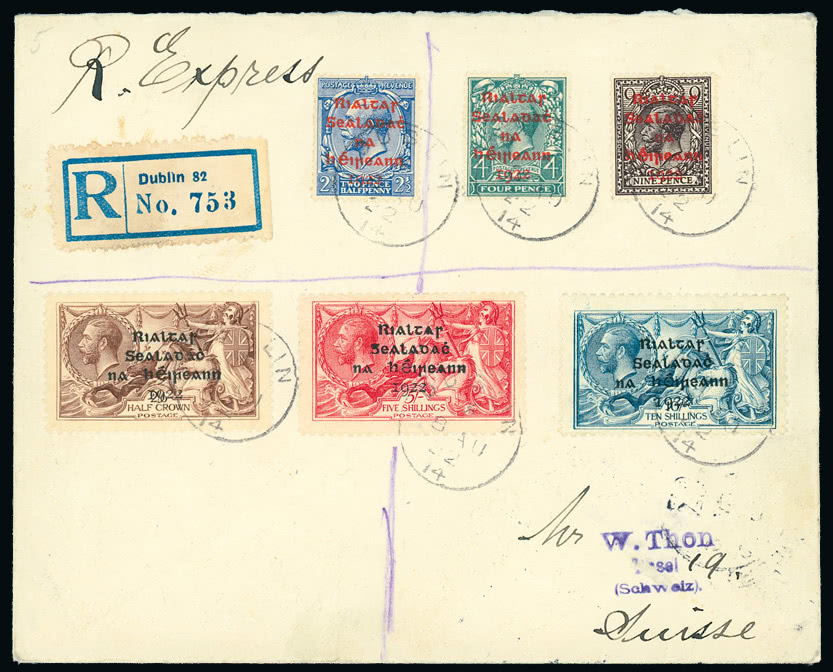 5
R. Express
R
Dublin 82
No. 753
POSTAGE REVENUE
Rialtas
Sealadaċ
na
hÉireann
1922
2½ TWOPENCE HALFPENNY 2½
Rialtas
Sealadaċ
na
hÉireann
1922
4 4
FOUR PENCE
9 9
Rialtas
Sealadaċ
na
hÉireann
1922
NINE PENCE
Rialtas
Sealadaċ
na hÉireann
1922
HALF CROWN
POSTAGE
Rialtas
Sealadaċ
na hÉireann
1922
5/-
FIVE SHILLINGS
POSTAGE
Rialtas
Sealadaċ
na hÉireann
1922
TEN SHILLINGS
POSTAGE
LIN
AU
22
14
Mr W. Thon
19
(Schweiz).
Suisse